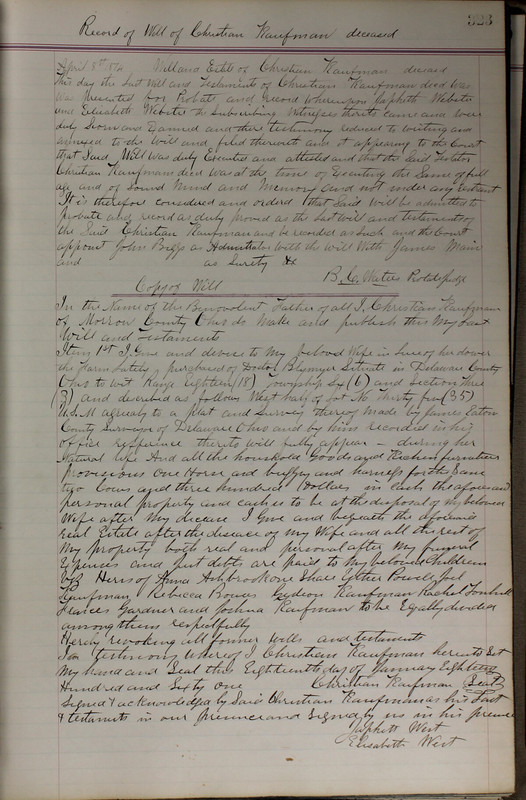 323
Record of Will of Christian Kaufman deceased
April 8th 1874 Will and Estate of Christian Kaufman deceased
This day the Last Will and Testament of Christian Kaufman decd was
was presented for Probate and record whereupon Japheth Webster
and Elisabeth Webster the Subscribing Witnesses thereto came and were
duly Sworn and Examined and their testimony reduced to writing and
annexed to the Will and filed therewith and it appearing to the Court
that Said Will was duly Executed and attested and that the Said Testator
Christian Kaufman decd was at the time of Executing the Same of full
age and of Sound Mind and Memory and not under any restraint
It is therefore considered and ordered that Said Will be admitted to
probate and record as duly proved as the Last Will and testament of
the Said Christian Kaufman and be recorded as Such and the Court
appoint John Biggs as Administrator with the Will With James Main
and as Surety &c
B. C. Waters Probate Judge
Copy of Will
In the Name of the Benevolent Father of all I, Christian Kaufman
of Morrow County Ohio do Make and publish this My Last
Will and Testament
Item 1st I Give and devise to My beloved Wife in Lieu of her dower
the Farm Lately purchased of Doctor Blymyer Situate in Delaware County
Ohio to wit Range Eighteen (18) Township Six (6) and Section Three
(3) and described as follows West half of Lot No Thirty five (35)
U.S.M agreeably to a plat and Survey thereof made by James Eaton
County Surveyor of Delaware Ohio and by him recorded in his
office reference thereto will fully appear - during her
Natural life And all the houshold Goods and Kitchen furniture
provisions One Horse and buggy and harness for the Same
two Cows and three hundred Dollars in Cash the aforesaid
personal property and cash is to be at the disposal of my beloved
Wife after My decease I Give and bequeath the aforesaid
real Estate after the decease of my Wife and all the rest of
My property both real and personal after My funeral
Expenses and just debts are paid to My beloved Children
Heirs of Anna Ashbrook one Share Esther Powell
Kaufman Rebecca Gideon Kaufman Rachel
Frances Gardner and Joshua Kaufman to be Equally divided
among them respectfully
Hereby revoking all former wills and testaments
In testimony whereof I Christian Kaufman hereunto Set
My hand and Seal this Eighteenth day of January Eighteen
Hundred and Sixty One Christian Kaufman Seal
Signed & acknowledged by Said Christian Kaufman as his Last
& testament in our presence and Signed by us in his presence
Japheth West
Elisabeth West